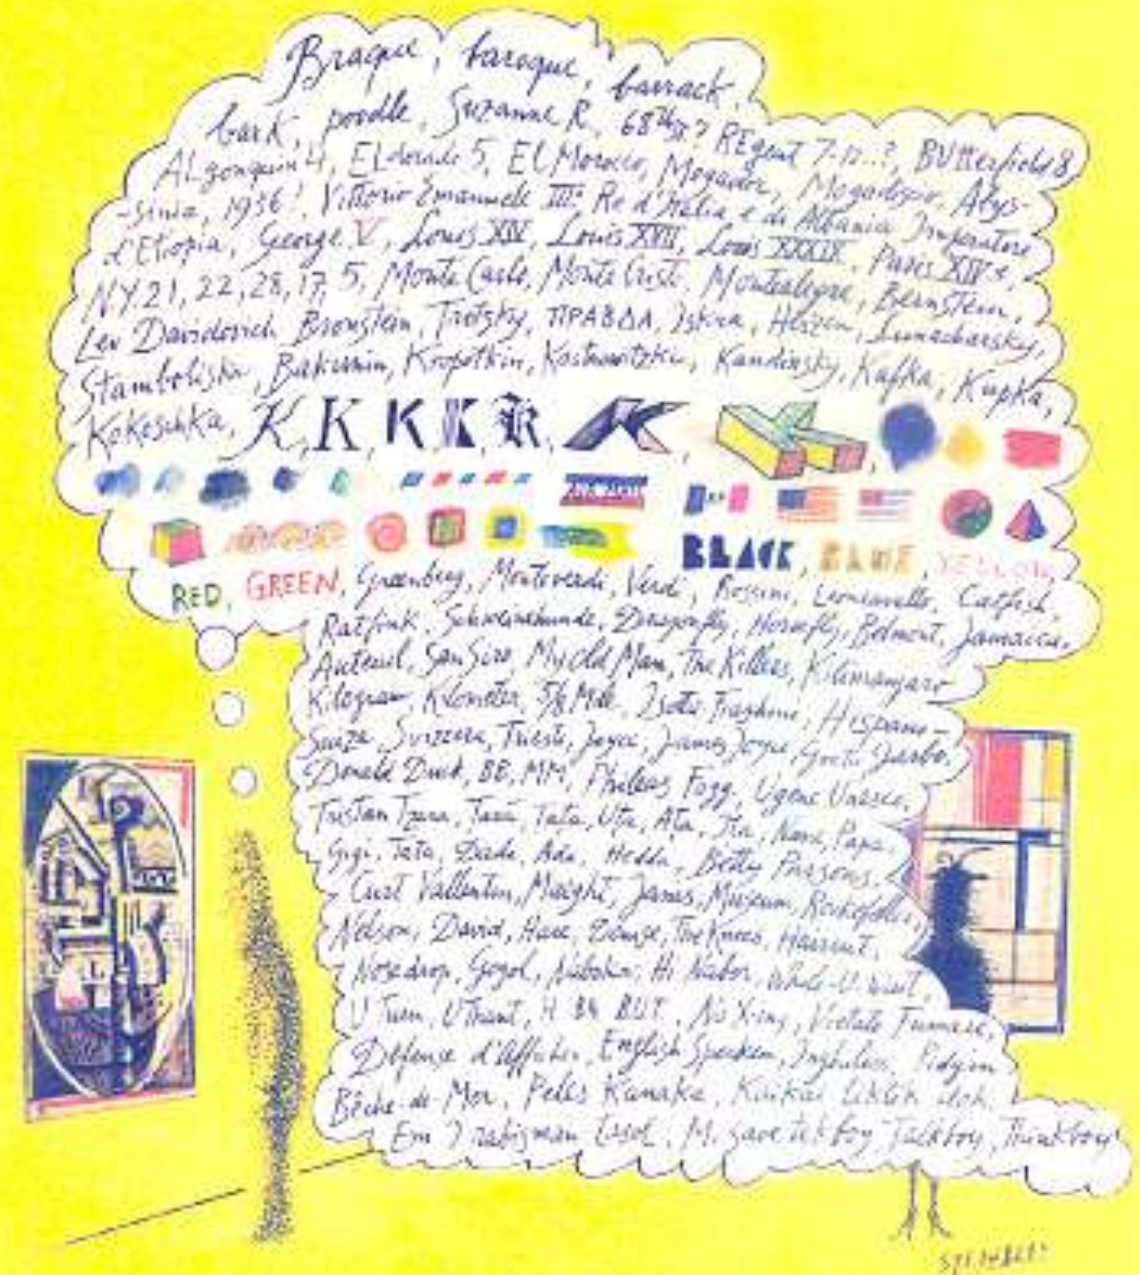 Braque, baroque, barrack,
bark, poodle, Suzanne R, 68th St? REgent 7-12..?, BUtterfield 8
ALgonquin 4, ELdorado 5, El Morocco, Mogador, Mogadiscio, Abys-
-sinia, 1936! Vittorio Emanuele III: Re d'Italia e di Albania Imperatore
d'Etiopia, George V, Louis XIV, Louis XVII, Louis XXXIX, Paris XIVe,
N.Y. 21, 22, 28, 17, 5, Monte Carlo, Monte Cristo, Montealegre, Bernstein,
Lev Davidovich Bronstein, Trotzky, ПРАВДА, Iskra, Herzen, Lunacharsky,
Stambolisky, Bakunin, Kropotkin, Kandinsky, Kafka, Kupka,
Kokoschka, K, K, K, K, K, K,
BLACK, BLUE, YELLOW,
RED, GREEN, Greenberg, Monteverdi, Verdi, Rossini, Leoncavallo, Catfish,
Ratfink, Schweinehunde, Dragonfly, Horsefly, Belmont, Jamaica,
Auteuil, San Siro, My Old Man, The Killers, Kilimanjaro
Kilogram, Kilometer, 5/8 Mile, Isotta Fraschini, Hispano-
Suiza, Svizzera, Trieste, Joyce, James Joyce, Greta Garbo,
Donald Duck, BB, MM, Phileas Fogg, Ugene Unesco,
Tristan Tzara, Tata, Uta, Ata, Ita, Nana, Papa,
Gigi, Tata, Dada, Ada, Hedda, Betty Parsons,
Curt Vallentin, Maeght, Janis, Museum, Rockefeller,
Nelson, David, Hare, Denise, The Knees, Harriet,
Nosedrop, Gogol, Nabokov, Hi Nabor, While-U-wait,
U Turn, U Thant, No X-ing, Vietato Fumare,
Défense d'Afficher, English Spoken, Pidgin
Bêche-de-Mer, Peles Kanaka, Kaikai
Em, Talkboy, Thinkboy
STEINBERG